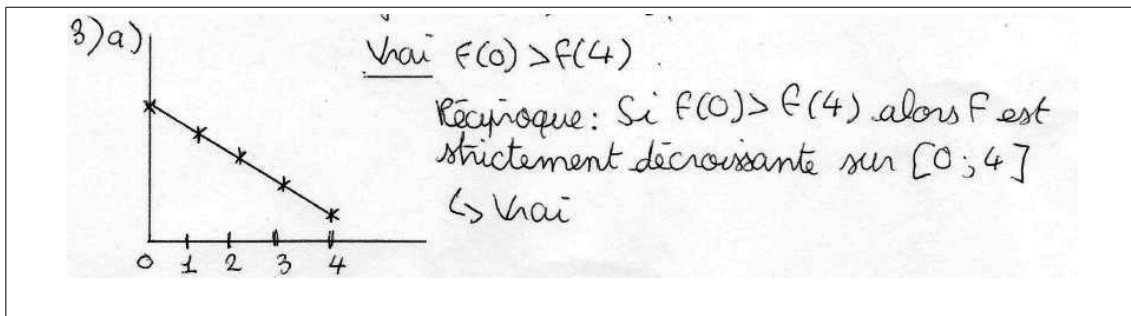 3)a)
Vrai F(0) > F(4).
Réciproque: Si F(0) > F(4) alors F est
strictement décroissante sur [0;4]
↳ Vrai
0 1 2 3 4